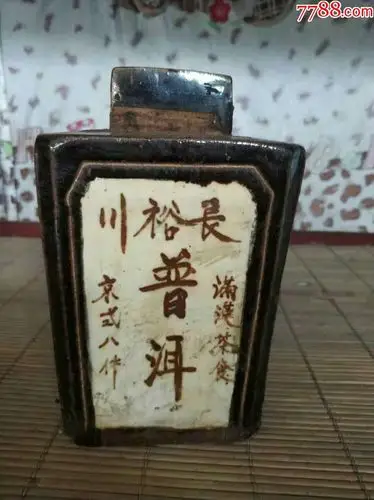 7788.com
長裕川
滿漢茶食
普洱
京式八件